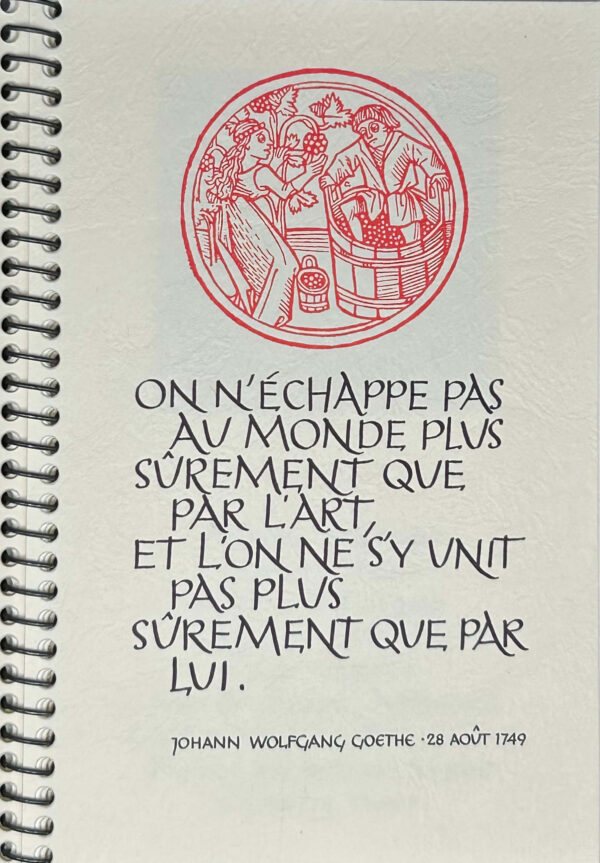 ON N'ÉCHAPPE PAS
AU MONDE PLUS
SÛREMENT QUE
PAR L'ART,
ET L'ON NE S'Y UNIT
PAS PLUS
SÛREMENT QUE PAR
LUI.
JOHANN WOLFGANG GOETHE · 28 AOÛT 1749